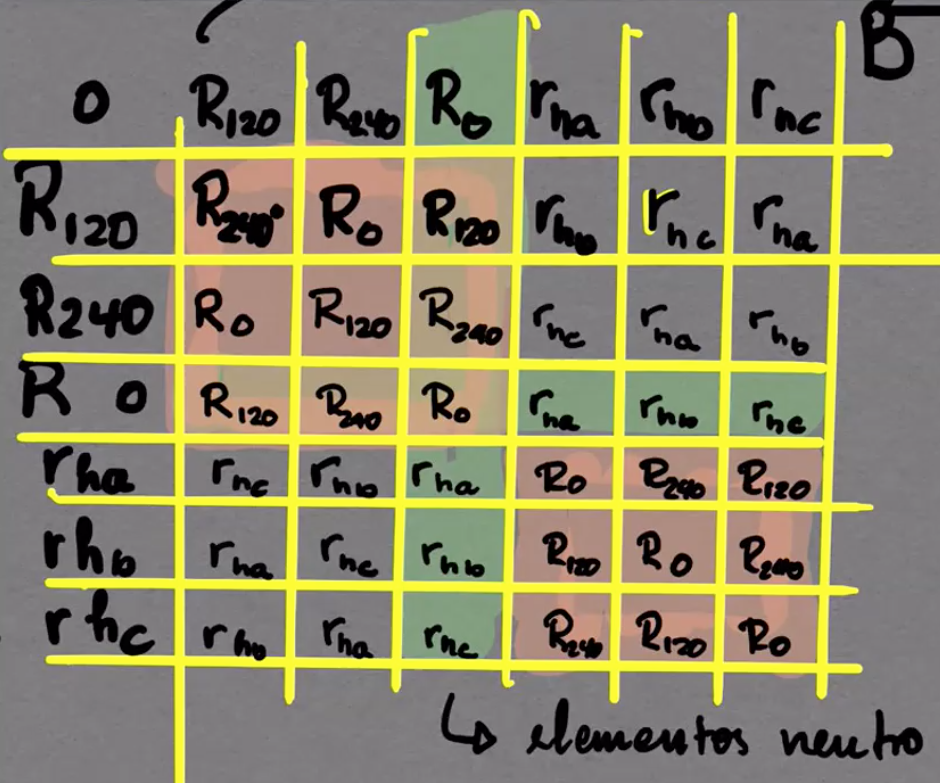 B
o R120 R240 R0 rha rhb rhc
R120 R240° R0 R120 rhb rhc rha
R240 R0 R120 R240 rhc rha rhb
R 0 R120 R240 R0 rha rhb rhc
rha rhc rhb rha R0 R240 R120
rhb rha rhc rhb R120 R0 R240
rhc rhb rha rhc R240 R120 R0
↳ elementos neutro